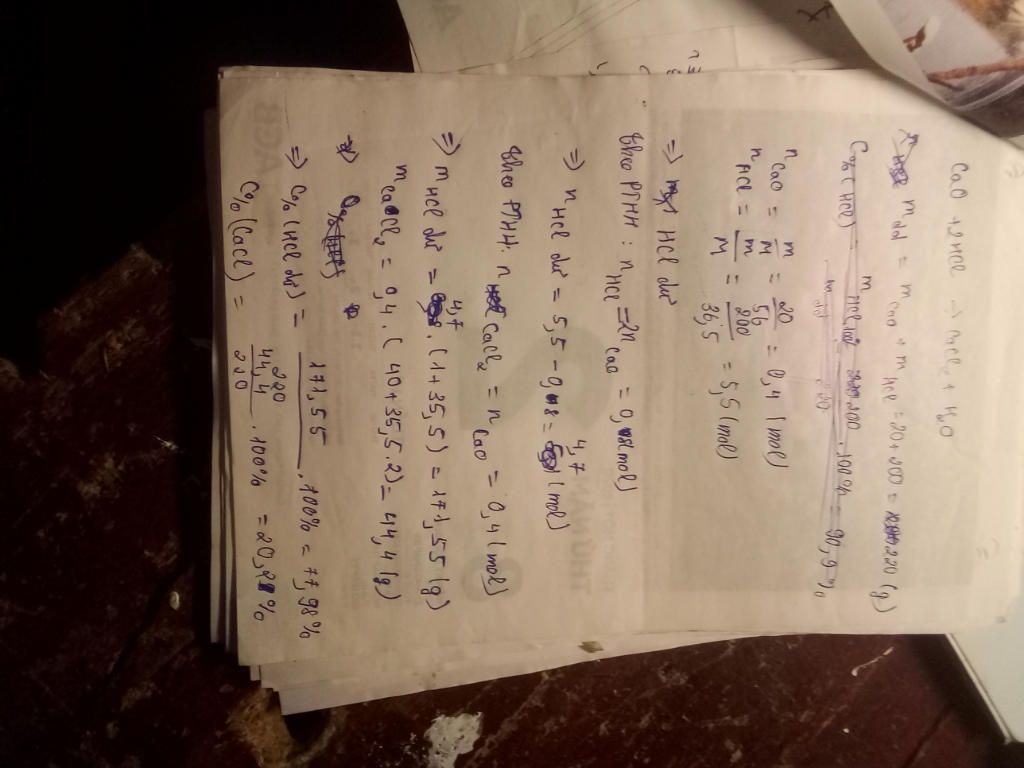 CaO + 2HCl → CaCl₂ + H₂O
m dd = m CaO + m HCl = 20 + 200 = 220 (g)
C% (HCl) m 200 . 100% = 90,9 %
n CaO = m/M = 20/56 = 0,4 (mol)
n HCl = m/M = 200/36,5 = 5,5 (mol)
=> HCl dư
theo PTHH : n HCl = 2n CaO = 0,8 mol)
=> n HCl dư = 5,5 - 0,8 = 4,7 (mol)
theo PTHH : n CaCl₂ = n CaO = 0,4 (mol)
=> m HCl dư = 4,7 . (1 + 35,5) = 171,55 (g)
m CaCl₂ = 0,4 . (40 + 35,5 . 2) = 44,4 (g)
=> C% (HCl dư) = 171,55/220 . 100% = 77,98 %
C% (CaCl) = 44,4/220 . 100% = 20,2%